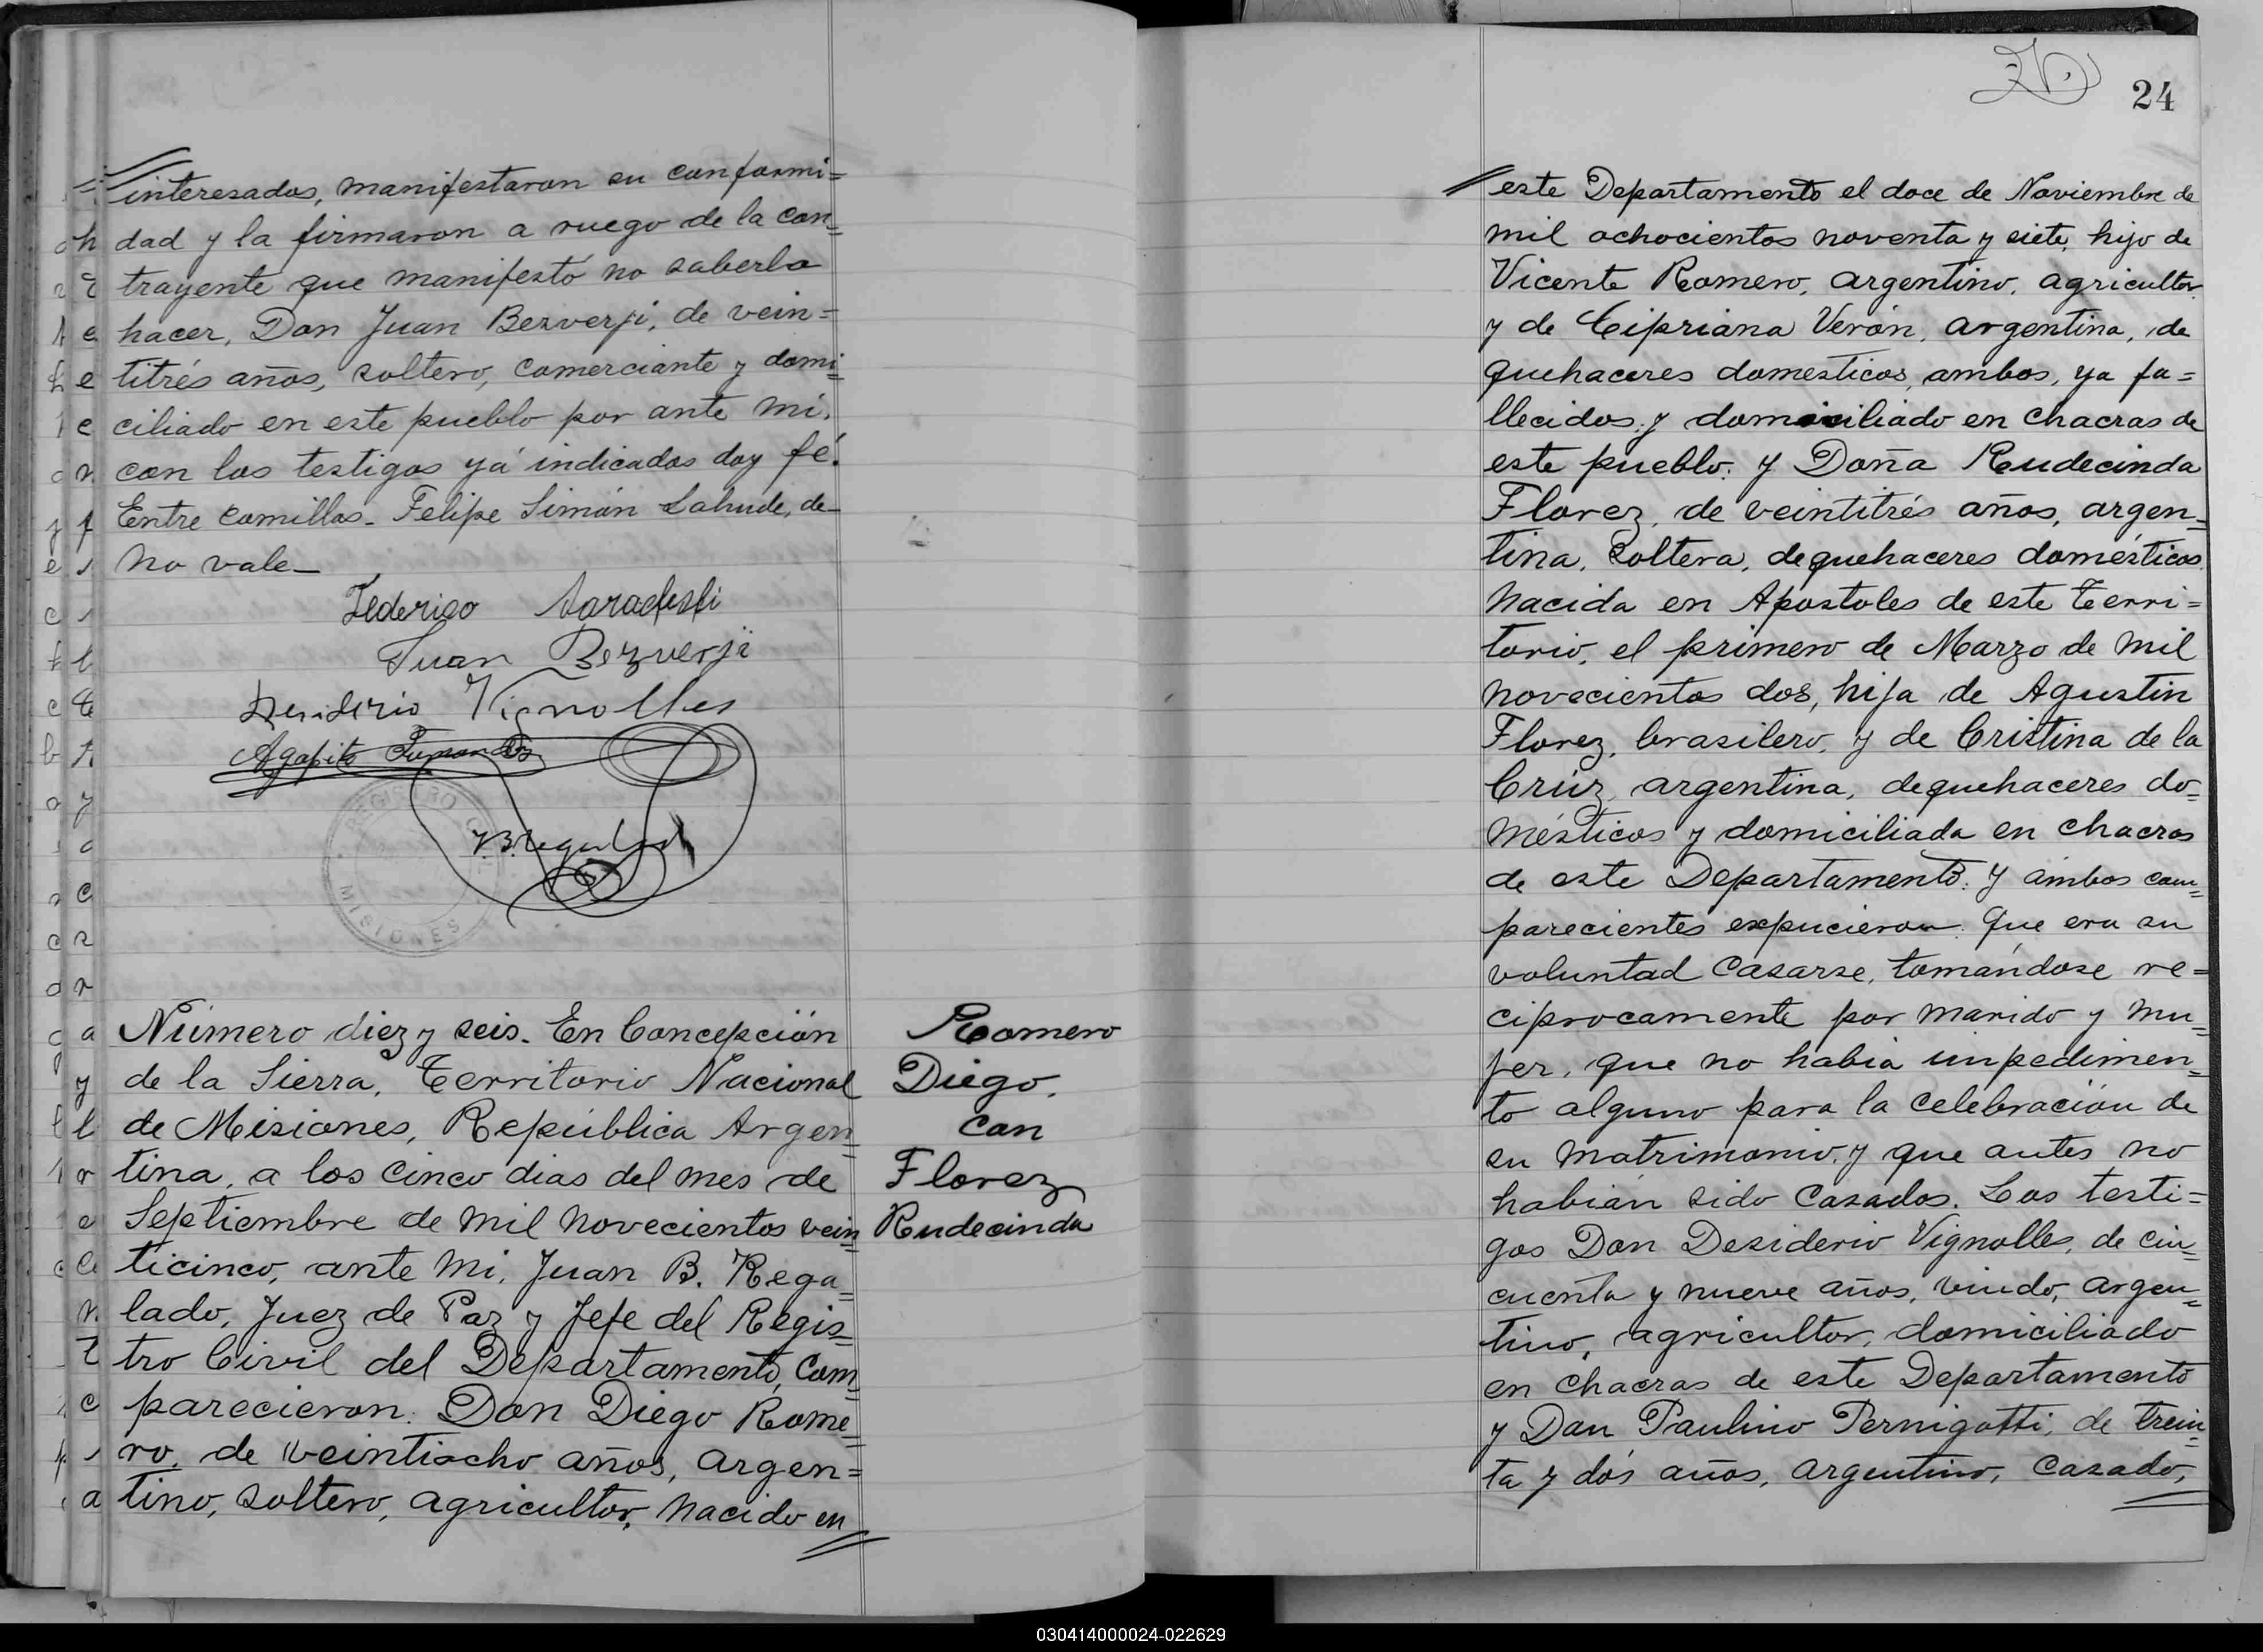 interesados, manifestaron su conformi=
dad y la firmaron a ruego de la con=
trayente que manifestó no saberlo
hacer, Don Juan Bezverji, de vein=
titrés años, soltero, comerciante y domi=
ciliado en este pueblo por ante mí,
con los testigos yá indicados doy fé.
Entre comillas - Felipe Simón Lahude, de -
no vale -
Federico
Juan Bezverji
Desiderio Vignolles
Agapito
J.B. Regalado
REGISTRO
MISIONES
Número diez y seis. En Concepción
de la Sierra, Territorio Nacional
de Misiones, República Argen=
tina, a los cinco dias del mes de
Septiembre de mil novecientos vein=
ticinco, ante mi, Juan B. Rega=
lado, Juez de Paz y Jefe del Regis=
tro Civil del Departamento, Com=
parecieron: Don Diego Rome=
ro, de veintiocho años, argen=
tino, soltero, agricultor, nacido en
Romero
Diego.
con
Florez
Rudecinda
24
este Departamento el doce de Noviembre de
mil ochocientos noventa y siete, hijo de
Vicente Romero, argentino, agricultor,
y de Cipriana Verón, argentina, de
quehaceres domesticos, ambos, ya fa=
llecidos, y domiciliado en chacras de
este pueblo: y Doña Rudecinda
Florez, de veintitrés años, argen=
tina, soltera, de quehaceres domésticos,
nacida en Apostoles de este Terri=
torio, el primero de Marzo de mil
novecientos dos, hija de Agustin
Florez, brasilero, y de Cristina de la
Crúz, argentina, de quehaceres do=
mésticos y domiciliada en chacras
de este Departamento: Y ambos com=
parecientes expucieron: Que era su
voluntad casarse, tomándose re=
ciprocamente por marido y mu=
jer, que no habia impedimen=
to alguno para la celebración de
su matrimonio, y que antes no
habian sido casados. Los testi=
gos Don Desiderio Vignolles, de cin=
cuenta y nueve años, viudo, argen=
tino, agricultor, domiciliado
en chacras de este Departamento
y Don Paulino Pernigotti, de trein=
ta y dós años, argentino, casado,
030414000024-022629